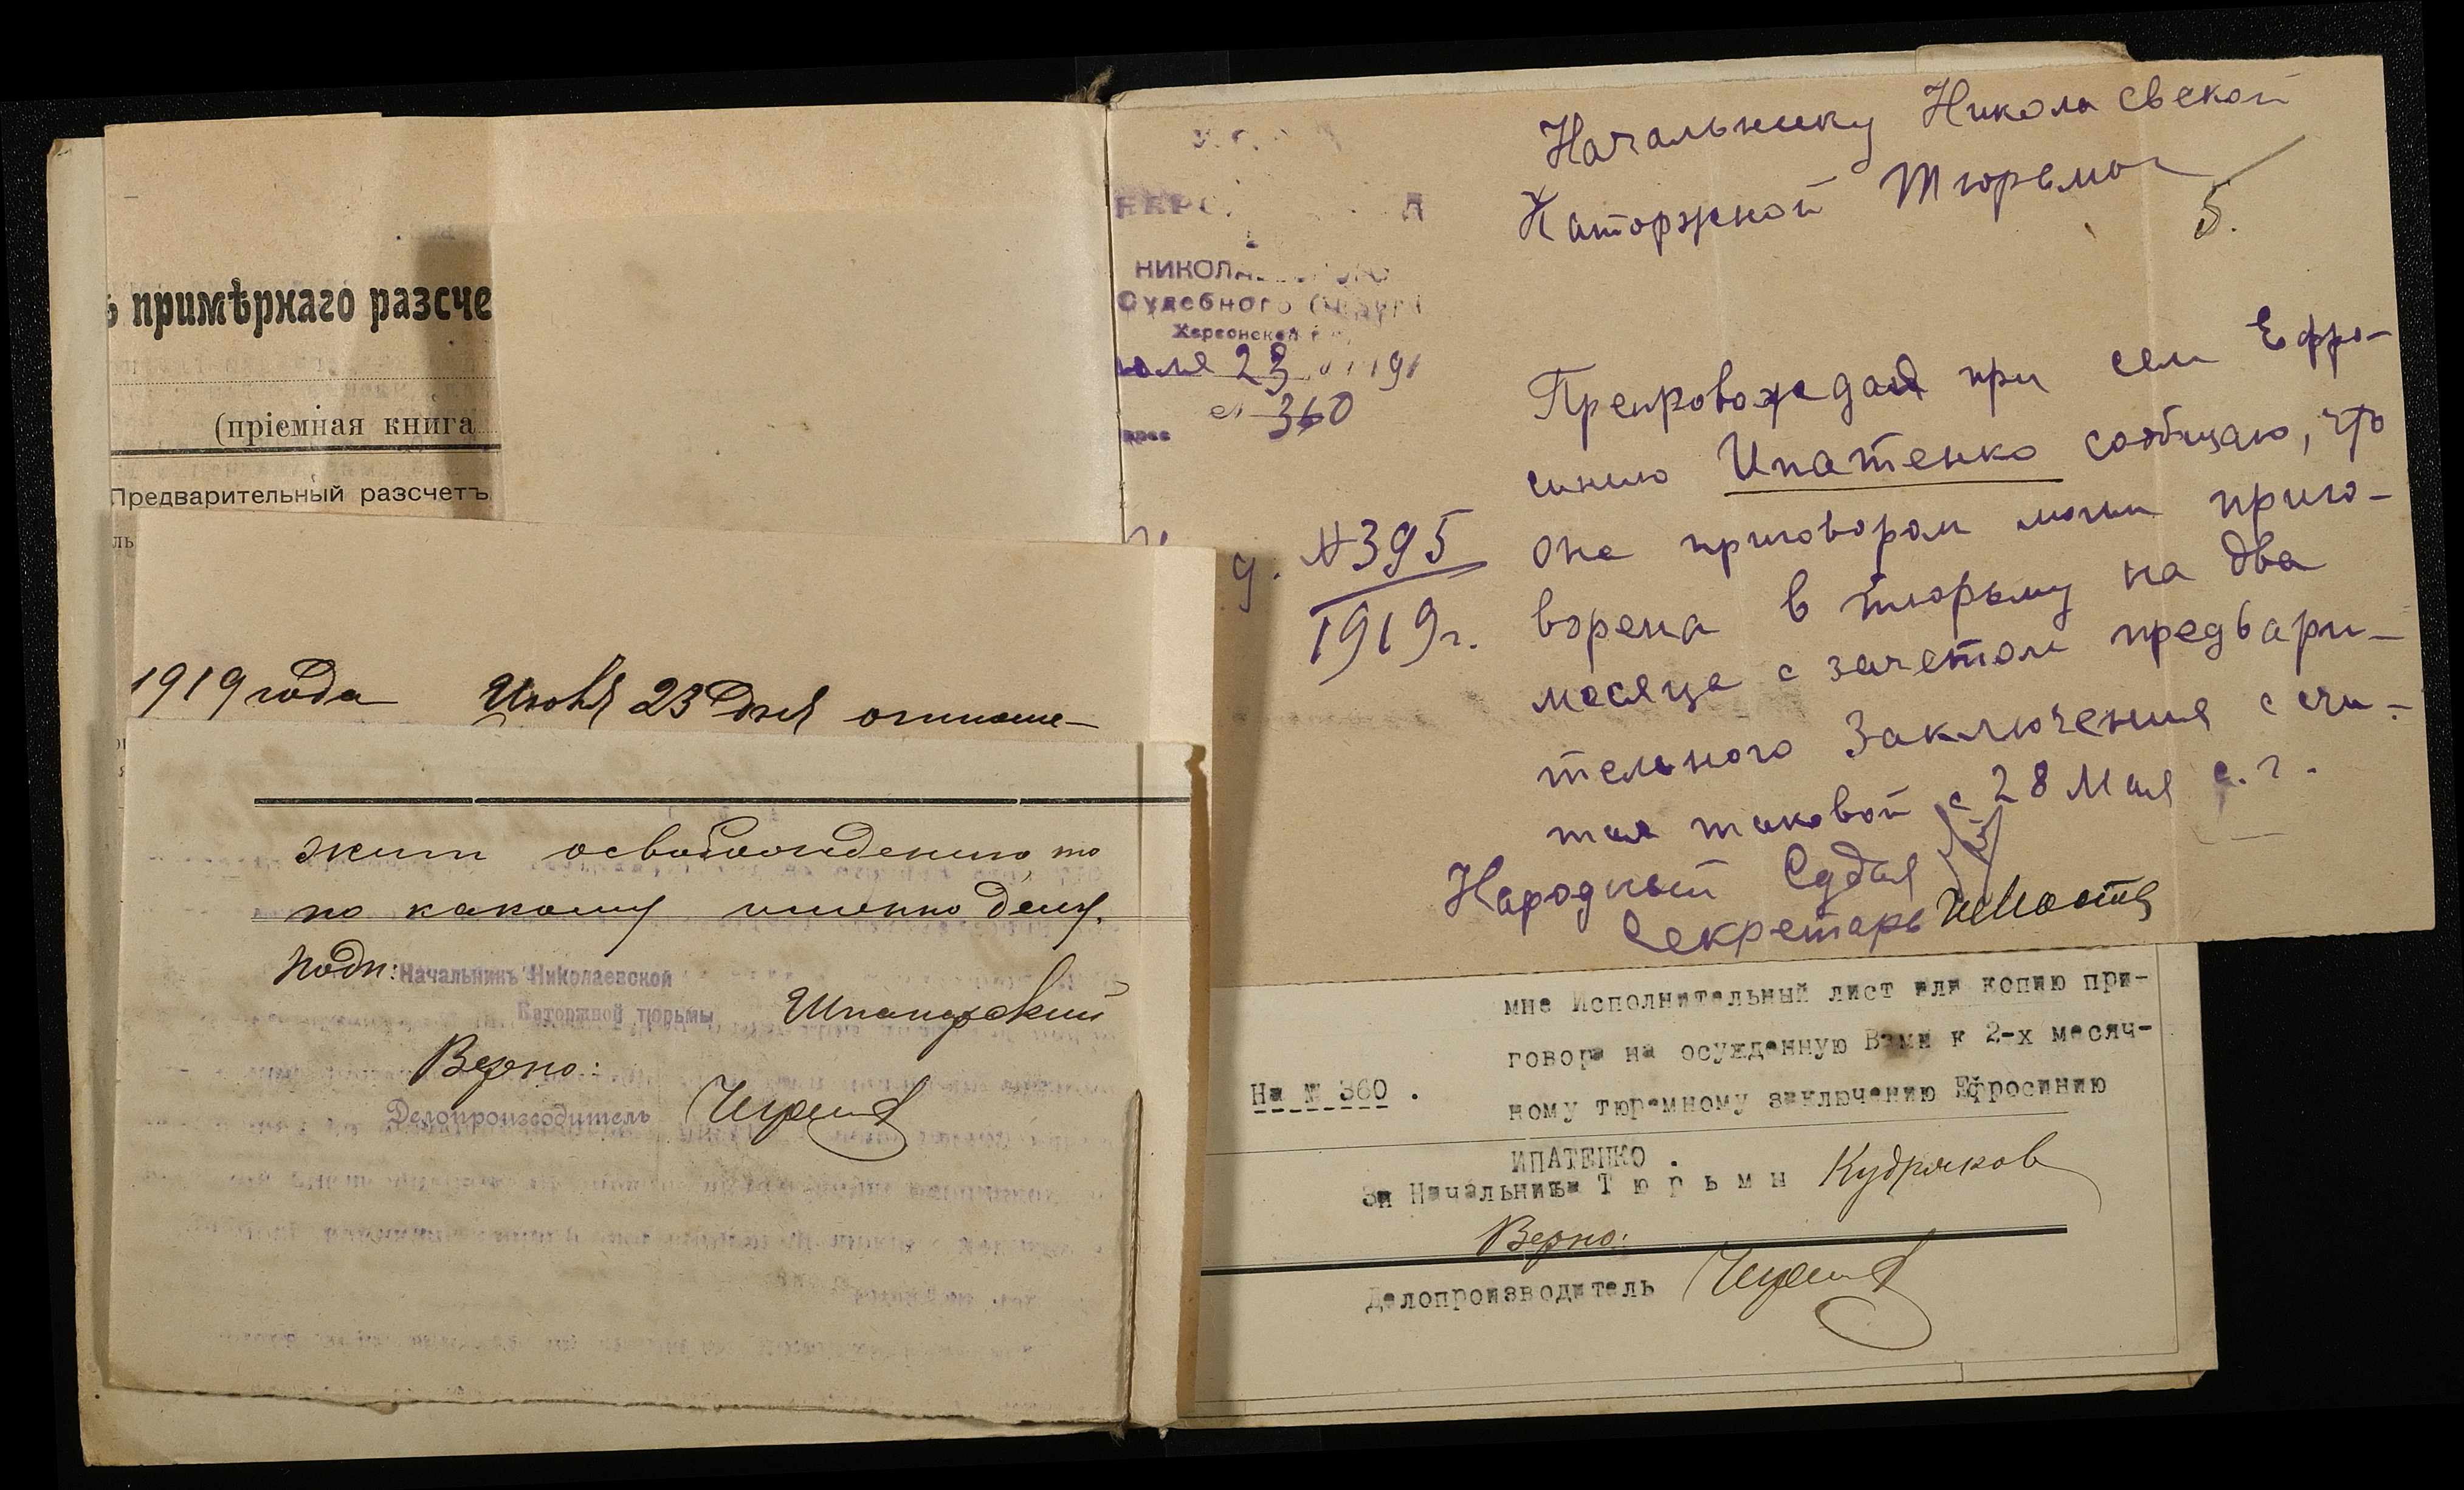 примѣрнаго разсче
(пріемная книга
Предварительный разсчетъ
1919 года Июня 23 дня отноше-
жит освобождению, то
по какому именно делу.
Подп: Начальникъ Николаевской
Каторжной тюрьмы
Верно:
Делопроизводитель
НИКОЛА
Судебного
Херсонской
23 191
№ 360
Начальнику Николаевской
Каторжной Тюрьмы
5.
№ 395
1919 г.
Препровождая при сем Ефро-
синию Ипатенко сообщаю, что
она приговором моим приго-
ворена в тюрьму на два
месяца с зачетом предвари-
тельного заключения счи-
тая таковой с 28 Мая с. г.
Народный Судья
Секретарь
мне Исполнительный лист или копию при-
говора на осужденную Вами к 2-х месяч-
На № 360.
ному тюремному заключению Ефросинию
ИПАТЕНКО .
За Начальника Тюрьмы Кудряков
Верно:
Делопроизводитель